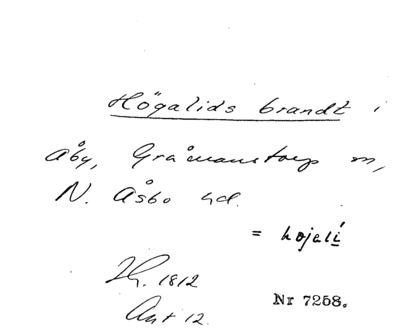 Högalids brandt i
Åby, Gråmanstorps sn,
N. Åsbo hd.
= hojali
Zh. 1812
Akt 12.
Nr 7258.